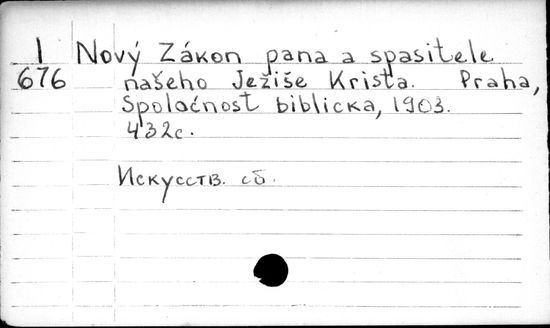 I Nový Zákon pana a spasitele
676 našeho Ježiše Krista. Praha,
Spolаčnost biblicka, 1903.
432с.
Искусств. сб.